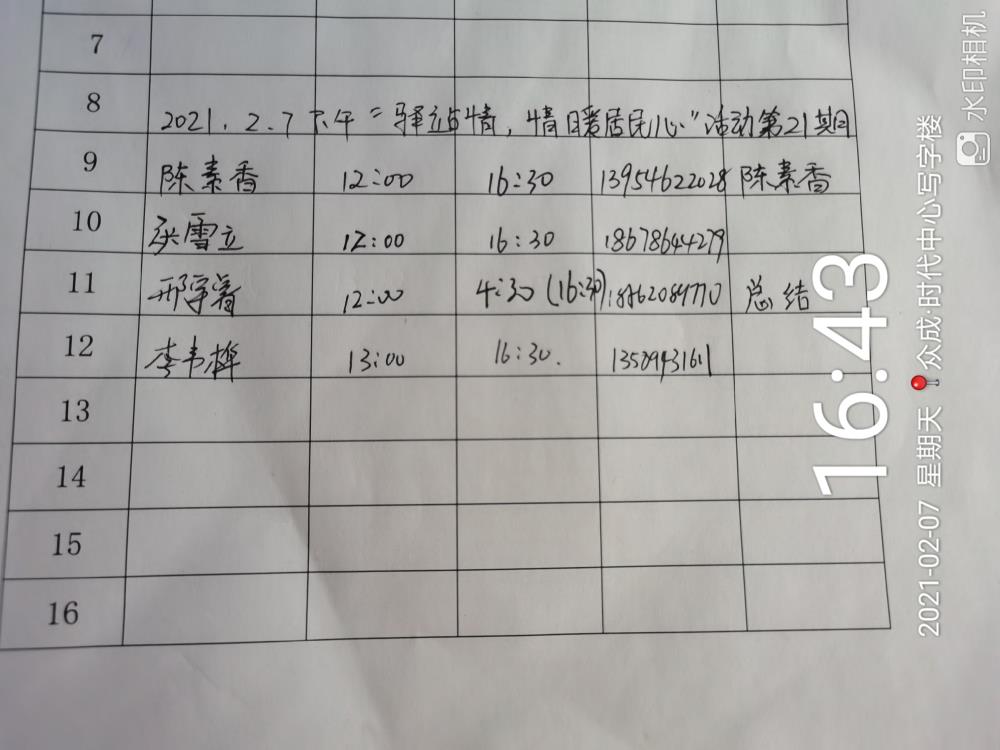 7
8 2021.2.7下午“驿站情,情暖居民心”活动第21期
9 陈素香 12:00 16:30 13954622028 陈素香
10 张雪立 12:00 16:30 18678644279
11 邢 12:00 4:30 (16:30) 总结
12 李 13:00 16:30.
13
14
15
16
16:43
2021-02-07 星期天 众成·时代中心写字楼
水印相机